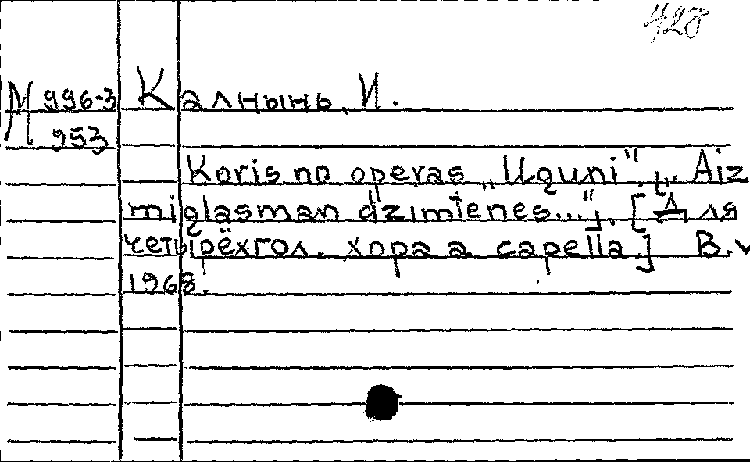 428
М 996-3
953
Калнынь, И.
Koris no operas „Uguni". [„Aiz
miglasman dzimtenes..."]. [Для
четырёхгол. хора a capella.] B. v
1968.